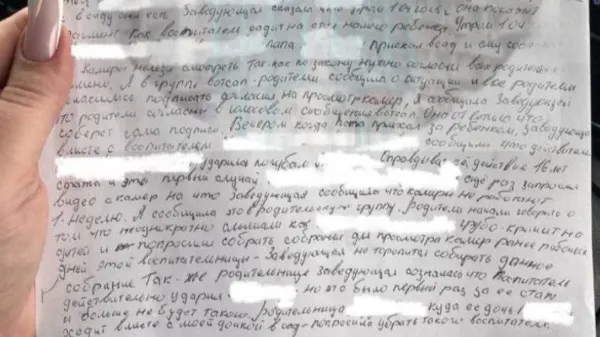 в саду они есть. Заведующая сказала что утром 1 е числа она покажет
как воспитатель садит на стул моего ребенка. Утром 1.04
папа приехал в сад и ему сооб
Камеры нельзя смотреть так-как по закону нужно согласие всех родителей
Я в группе ватсап-родителям сообщила о ситуации и все родители
согласились подписать согласия на просмотр камер, я сообщила заведующей
что родители согласны в голосовом сообщении ватсап. Она ответила что
соберет сама подписи. Вечером когда папа приехал за ребенком, заведующая
вместе с воспитателем сообщили что действительно
ударила по губам Оправдывая действие 16 лет
стажа и это первый случай ещё раз запросила
видео с камер на что заведующая сообщила что камеры не работают
1. неделю. Я сообщила это в родительскую группу. Родители начали говорить о
том что неоднократно слышали как грубо кричит на
детей и попросили собрать собрание для просмотра камер ранее рабочих
дней этой воспитательницы. Заведующая не торопится собирать данное
собрание. Так-же родительнице заведующая созналась что воспитатель
действительно ударил но это было первый раз за ее стаж
и больше не будет такого. Родительница куда ее дочь
ходит вместе с моей дочкой в сад - попросила убрать такого воспитателя.